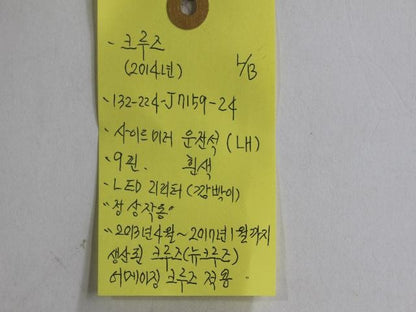 - 크루즈
(2014년) 4/13
- 132-224-J7159-24
- 사이드미러 운전석 (LH)
- 9핀. 흰색
- LED 리피터 (깜박이)
"정상작동"
- 2013년 4월 ~ 2017년 1월까지
생산된 크루즈(뉴크루즈)
어메이징 크루즈 적용